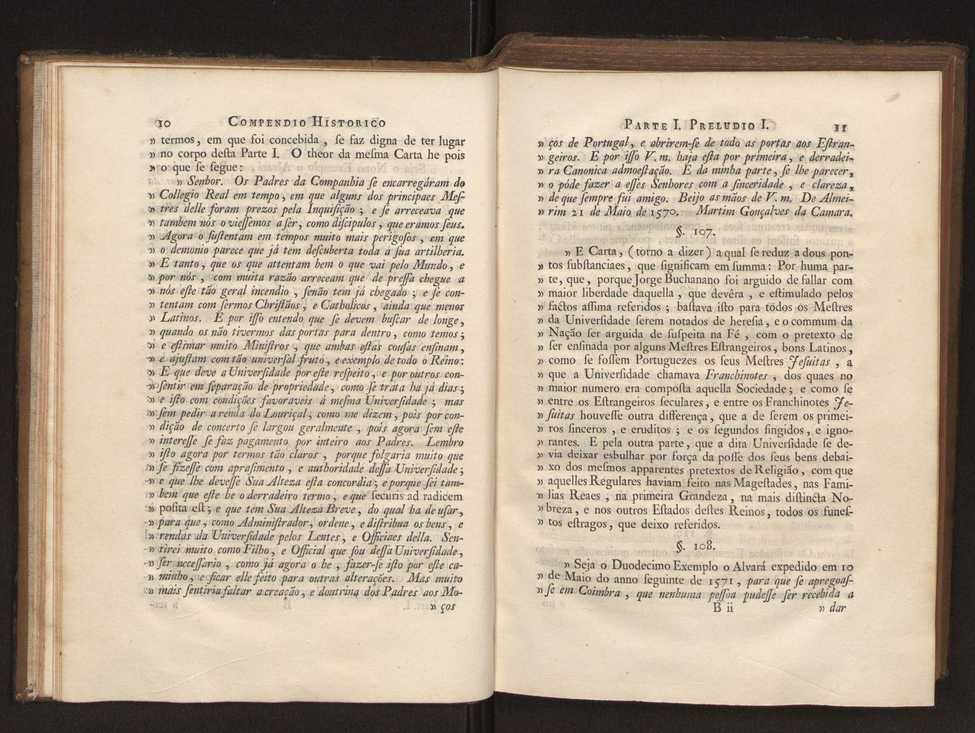 10 COMPENDIO HISTORICO
» termos, em que foi concebida, ſe faz digna de ter lugar
» no corpo deſta Parte I. O theor da meſma Carta he pois
» o que ſe ſegue:
» Senhor. Os Padres da Companhia ſe encarregáram do
» Collegio Real em tempo, em que alguns dos principaes Meſ-
» tres delle foram prezos pela Inquiſição; e ſe arreceava que
» tambem nós o vieſſemos a ſer, como diſcipulos, que eramos ſeus.
» Agora o ſuſtentam em tempos muito mais perigoſos, em que
» o demonio parece que já tem deſcuberta toda a ſua artilheria.
» E tanto, que os que attentam bem o que vai pelo Mundo, e
» por nós, com muita razão arreceam que de preſſa chegue a
» nós eſte tão geral incendio, ſenão tem já chegado; e ſe con-
» tentam com ſermos Chriſtãos, e Catholicos, ainda que menos
» Latinos. E por iſſo entendo que ſe devem buſcar de longe,
» quando os não tivermos das portas para dentro, como temos;
» e eſtimar muito Miniſtros, que ambas eſtas couſas enſinam,
» e ajuſtam com tão univerſal fruto, e exemplo de todo o Reino:
» E que deve a Univerſidade por eſte reſpeito, e por outros con-
» ſentir em ſeparação de propriedade, como ſe trata ha já dias;
» e iſto com condições favoraveis á meſma Univerſidade; mas
» ſem pedir a renda do Louriçal, como me dizem, pois por con-
» dição de concerto ſe largou geralmente, pois agora ſem eſte
» intereſſe ſe faz pagamento por inteiro aos Padres. Lembro
» iſto agora por termos tão claros, porque folgaria muito que
» ſe fizeſſe com apraſimento, e authoridade deſſa Univerſidade;
» e que lhe deveſſe Sua Alteza eſta concordia; e porque ſei tam-
» bem que eſte he o derradeiro termo, e que ſecuris ad radicem
» poſita eſt; e que tem Sua Alteza Breve, do qual ha de uſar,
» para que, como Adminiſtrador, ordene, e diſtribua os bens, e
» rendas da Univerſidade pelos Lentes, e Officiaes della. Sen-
» tirei muito como Filho, e Official que ſou deſſa Univerſidade,
» ſer neceſſario, como já agora o he, fazer-ſe iſto por eſte ca-
» minho, e ficar elle feito para outras alterações. Mas muito
» mais ſentiria faltar a creação, e doutrina dos Padres aos Mo-
» ços
PARTE I. PRELUDIO I. 11
» ços de Portugal, e abrirem-ſe de todo as portas aos Eſtran-
» geiros. E por iſſo V. m. haja eſta por primeira, e derradei-
» ra Canonica admoeſtação. E da minha parte, ſe lhe parecer,
» o póde fazer a eſſes Senhores com a ſinceridade, e clareza,
» de que ſempre fui amigo. Beijo as mãos de V. m. De Almei-
» rim 21 de Maio de 1570. Martim Gonçalves da Camara.
§. 107.
» E Carta, (torno a dizer) a qual ſe reduz a dous pon-
» tos ſubſtanciaes, que ſignificam em ſumma: Por huma par-
» te, que, porque Jorge Buchanano foi arguido de fallar com
» maior liberdade daquella, que devêra, e eſtimulado pelos
» factos aſſima referidos; baſtava iſto para todos os Meſtres
» da Univerſidade ſerem notados de hereſia, e o commum da
» Nação ſer arguida de ſuſpeita na Fé, com o pretexto de
» ſer enſinada por alguns Meſtres Eſtrangeiros, bons Latinos,
» como ſe foſſem Portuguezes os ſeus Meſtres Jeſuitas, a
» que a Univerſidade chamava Franchinotes, dos quaes no
» maior numero era compoſta aquella Sociedade; e como ſe
» entre os Eſtrangeiros ſeculares, e entre os Franchinotes Je-
» ſuitas houveſſe outra differença, que a de ſerem os primei-
» ros ſinceros, e eruditos; e os ſegundos fingidos, e igno-
» rantes. E pela outra parte, que a dita Univerſidade ſe de-
» via deixar esbulhar por força da poſſe dos ſeus bens debai-
» xo dos meſmos apparentes pretextos de Religião, com que
» aquelles Regulares haviam feito nas Mageſtades, nas Fami-
» lias Reaes, na primeira Grandeza, na mais diſtincta No-
» breza, e nos outros Eſtados deſtes Reinos, todos os funeſ-
» tos eſtragos, que deixo referidos.
§. 108.
» Seja o Duodecimo Exemplo o Alvará expedido em 10
» de Maio do anno ſeguinte de 1571, para que ſe apregoaſ-
» ſe em Coimbra, que nenhuma peſſoa pudeſſe ſer recebida a
B ii » dar